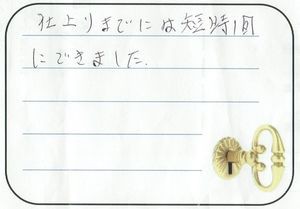 仕上りまでには短時間
にできました.